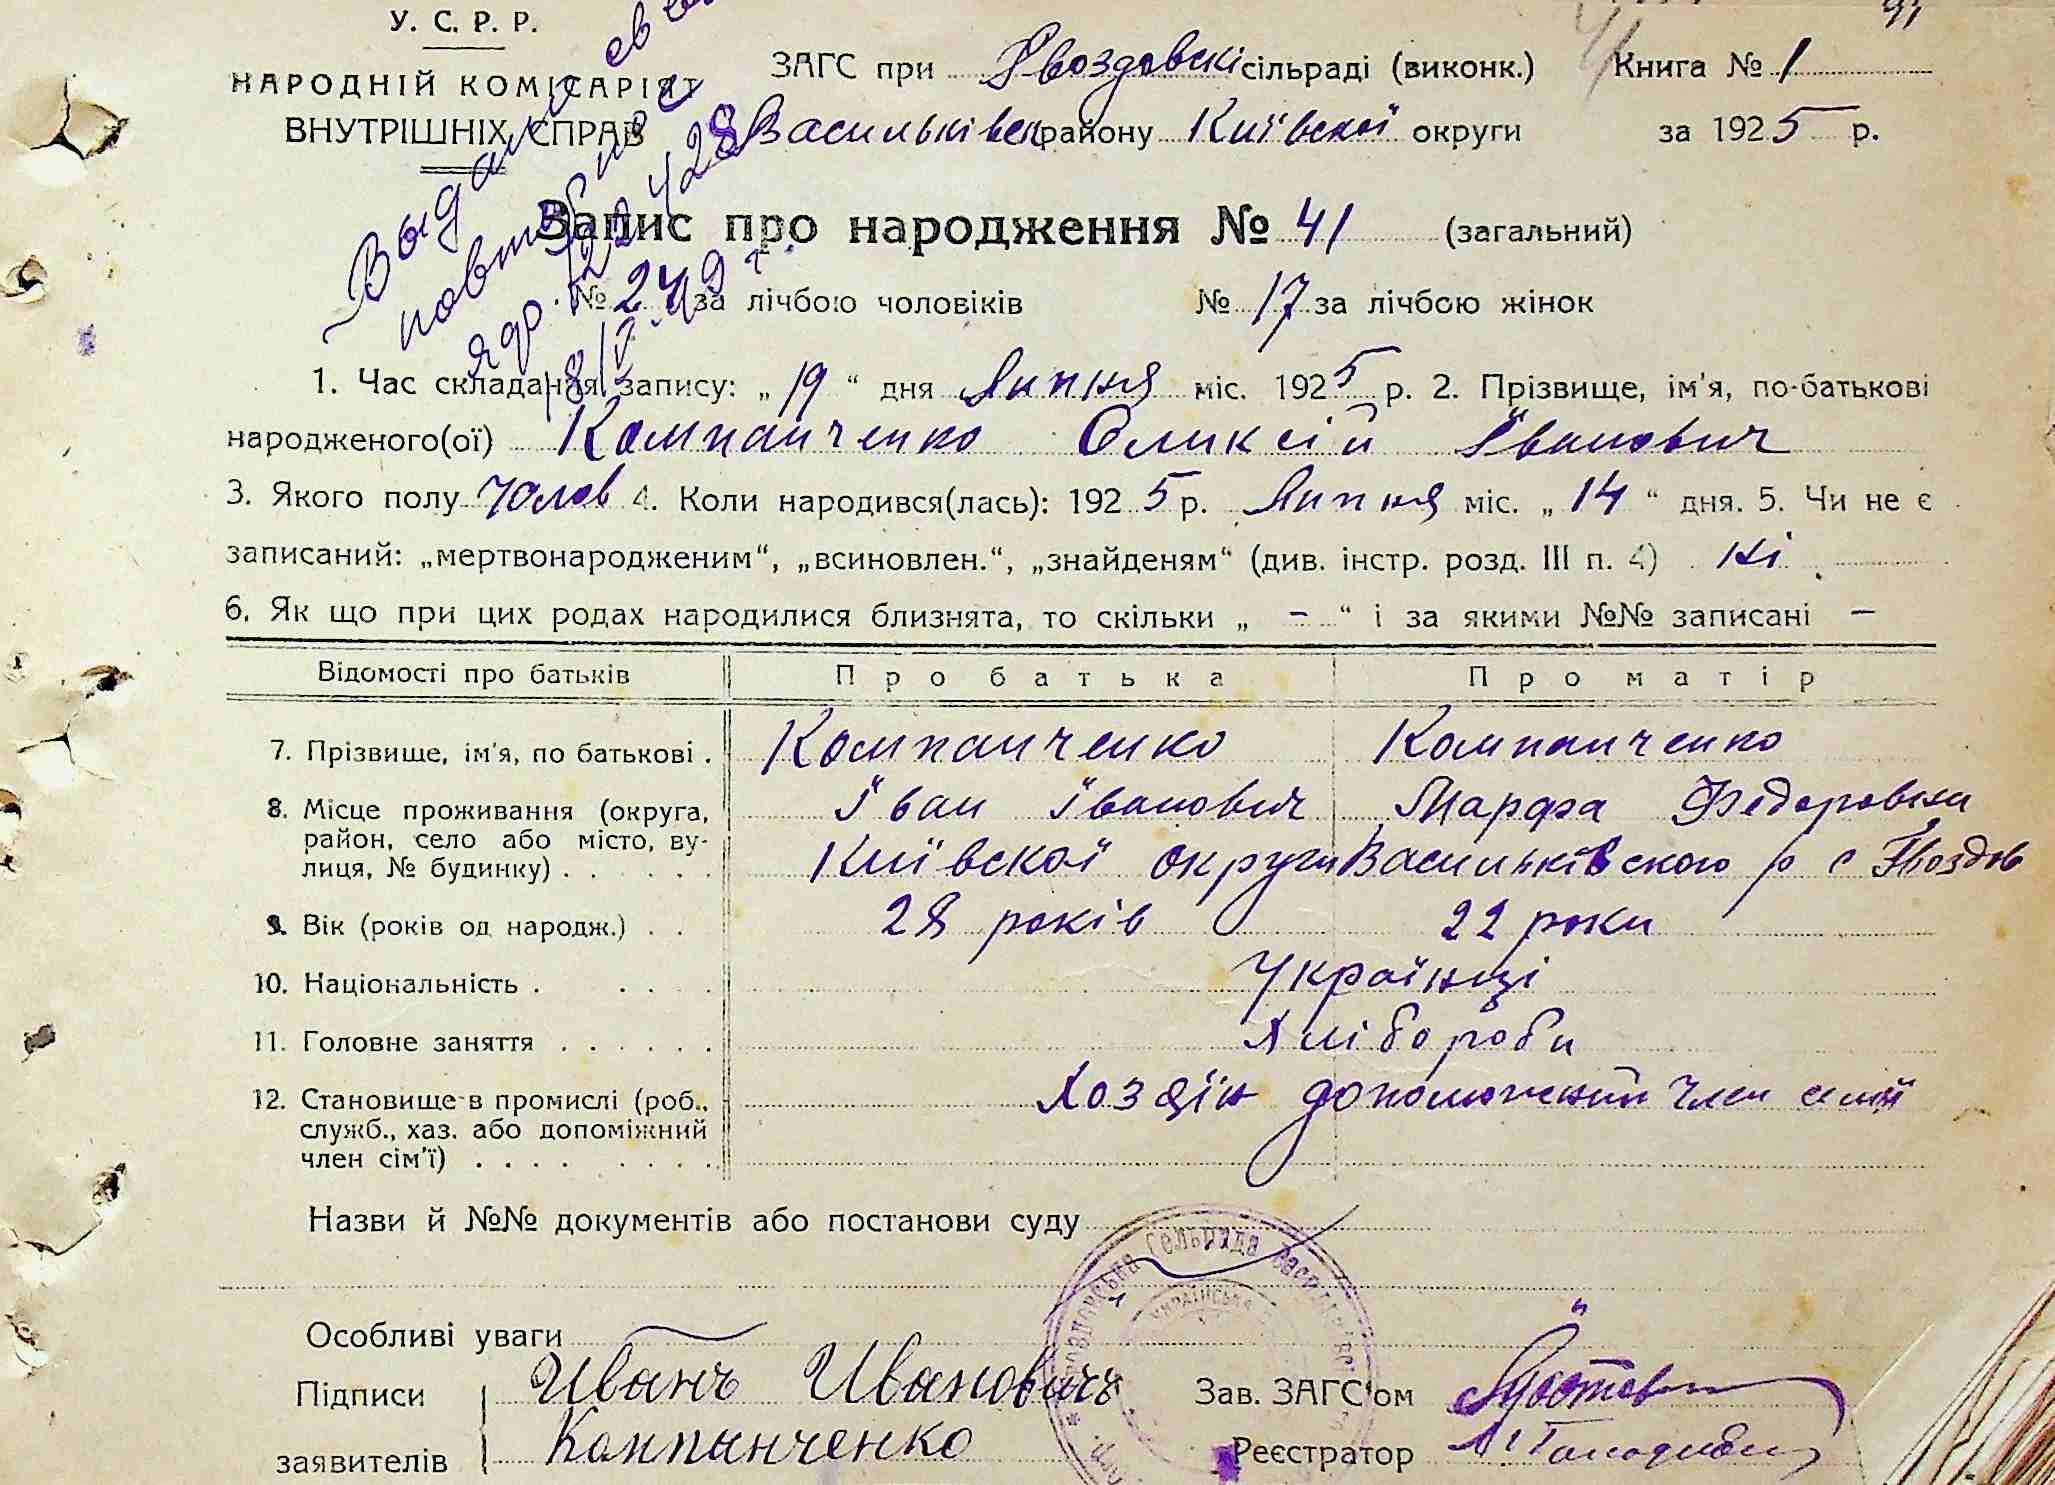 У. С. Р. Р.
НАРОДНІЙ КОМІСАРІЯТ
ВНУТРІШНІХ СПРАВ
ЗАГС при Гвоздовскі сільраді (виконк.) Книга № 1
Васильківськ району Київської округи за 1925 р.
41
Выдано
повторное
ЯЮ 122428
18/V.49 г.
Запис про народження № 41 (загальний)
№ 24 за лічбою чоловіків № 17 за лічбою жінок
1. Час складання запису: „19“ дня Липня міс. 1925 р. 2. Прізвище, ім'я, по-батькові
народженого(ої) Компанченко Оликсій Іванович
3. Якого полу Чолов 4. Коли народився(лась): 1925 р. Липня міс. „14“ дня. 5. Чи не є
записаний: „мертвонародженим“, „всиновлен.“, „знайденям“ (див. інстр. розд. III п. 4) Ні
6. Як що при цих родах народилися близнята, то скільки „ – “ і за якими №№ записані –
Відомості про батьків Про батька Про матір
7. Прізвище, ім'я, по батькові . Компанченко Компанченко
Іван Іванович Марфа Федоровна
8. Місце проживання (округа,
район, село або місто, ву-
лиця, № будинку) . . . . . . Київскої округи Васильківского р с Гвоздов
9. Вік (років од народж.) . . 28 років 22 роки
10. Національність . . . . . Українці
11. Головне заняття . . . . . . Хлібороби
12. Становище в промислі (роб.,
служб., хаз. або допоміжний
член сім'ї) . . . . . . . . Хозяїн допоможний член семії
Назви й №№ документів або постанови суду
Гвоздовська Сельрада Васильківськ
Українська
Особливі уваги
Підписи Иванъ Ивановичъ Зав. ЗАГС'ом
заявителів Компанченко Реєстратор